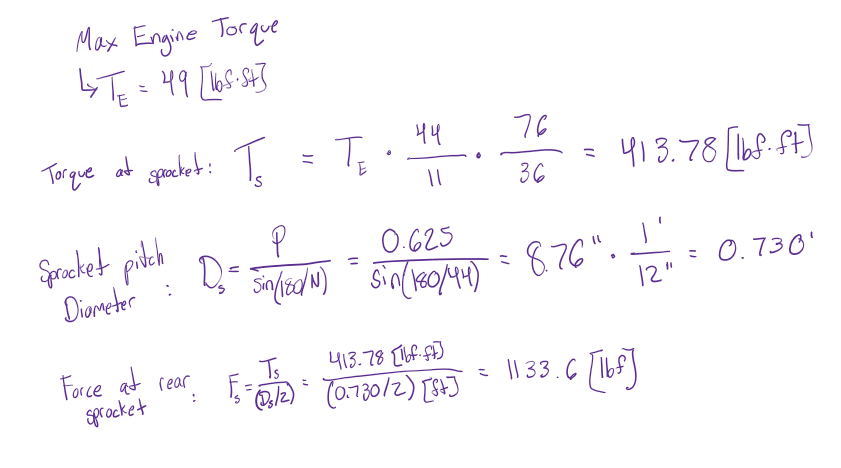 Max Engine Torque
↳ T_E = 49 [lbf·ft]
Torque at sprocket: T_s = T_E · 44/11 · 76/36 = 413.78 [lbf·ft]
Sprocket pitch Diameter: D_s = P/sin(180/N) = 0.625/sin(180/44) = 8.76" · 1'/12" = 0.730'
Force at rear sprocket: F_s = T_s/(D_s/2) = 413.78 [lbf·ft]/(0.730/2) [ft] = 1133.6 [lbf]